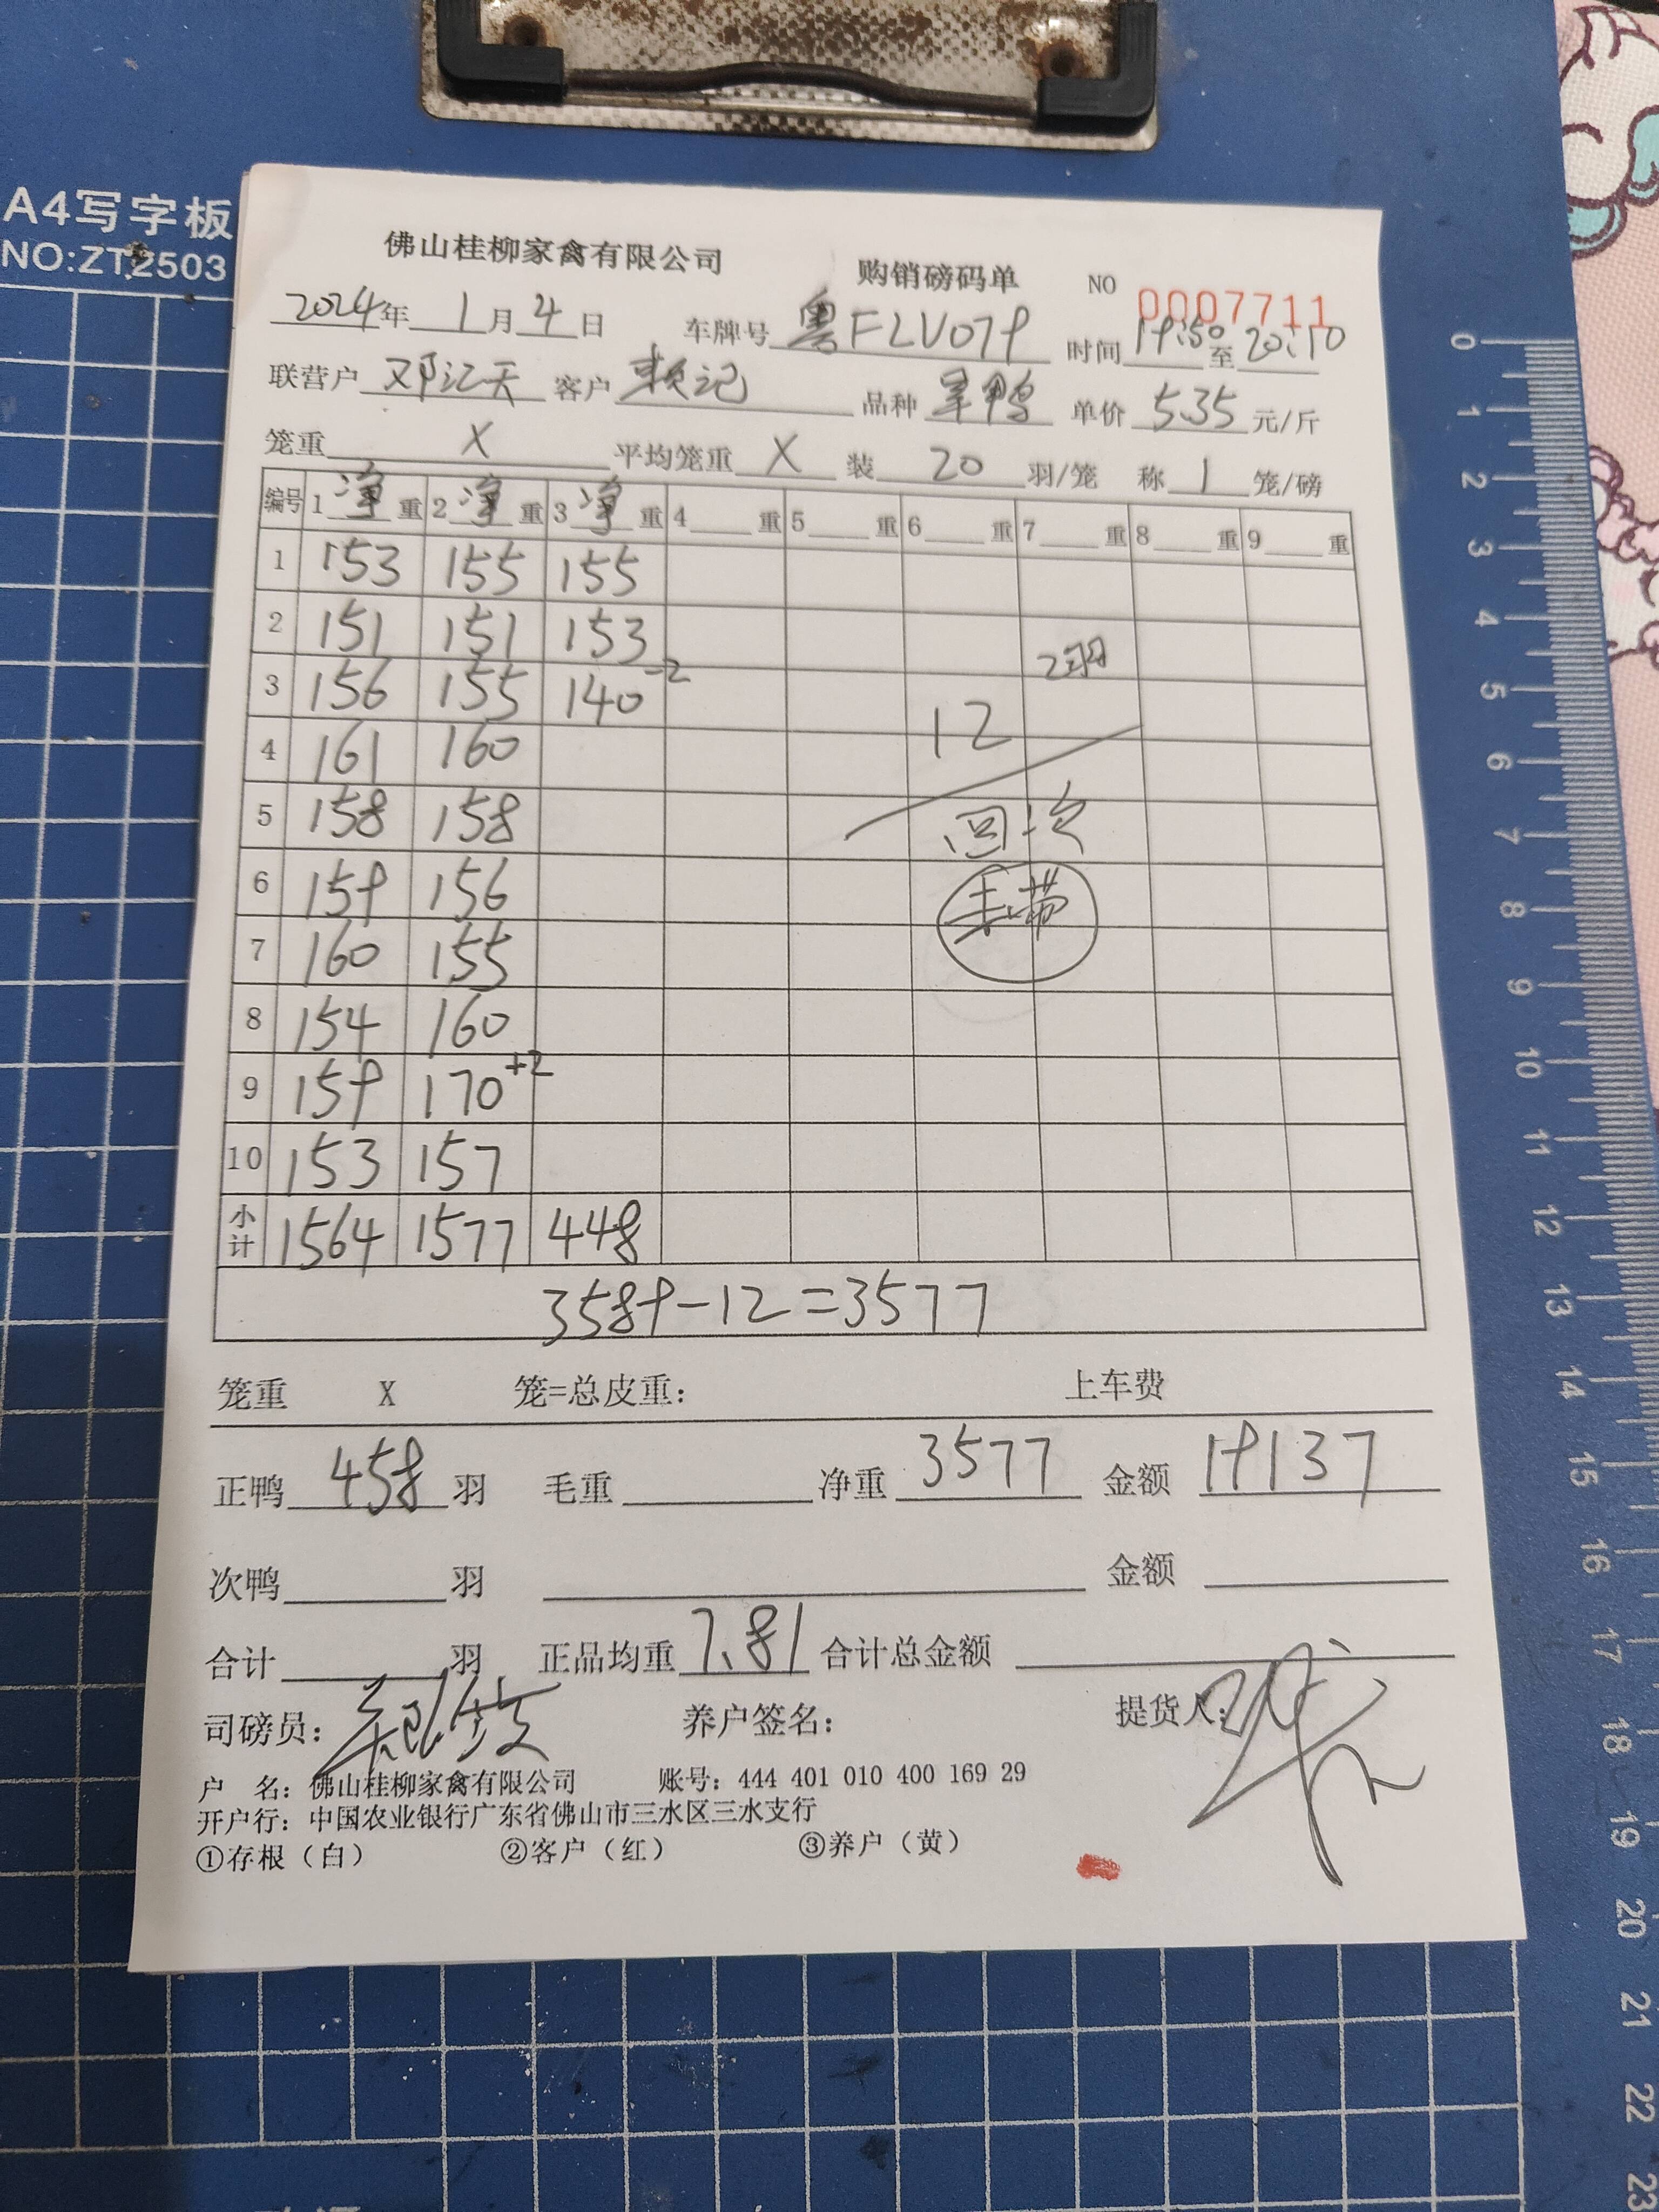 A4写字板
NO:ZT2503
佛山桂柳家禽有限公司 购销磅码单 NO 0007711
2024年1月4日 车牌号 粤FLV079 时间 19:50至20:10
联营户 邓江天 客户 赖记 品种 单价 5.35 元/斤
笼重 X 平均笼重 X 装 20 羽/笼 称 1 笼/磅
编号 1 净 重 2 净 重 3 净 重 4 重 5 重 6 重 7 重 8 重 9 重
1 153 155 155
2 151 151 153
2羽
3 156 155 140 -2
4 161 160
12
5 158 158
回次
6 159 156
7 160 155
8 154 160
9 159 170 +2
10 153 157
小计 1564 1577 448
3589-12=3577
笼重 X 笼=总皮重: 上车费
正鸭 458 羽 毛重 净重 3577 金额 19137
次鸭 羽 金额
合计 羽 正品均重 7.81 合计总金额
司磅员: 养户签名: 提货人:
户 名: 佛山桂柳家禽有限公司 账号: 444 401 010 400 169 29
开户行: 中国农业银行广东省佛山市三水区三水支行
①存根（白） ②客户（红） ③养户（黄）
0
1
2
3
4
5
6
7
8
9
10
11
12
13
14
15
16
17
18
19
20
21
22
23